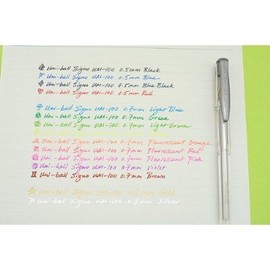 Uni-ball Signo UM-100 0.5mm Black
Uni-ball Signo UM-100 0.5mm Blue
Uni-ball Signo UM-100 0.5mm Blue Black
Uni-ball Signo UM-100 0.5mm Red
Uni-ball Signo UM-100 0.7mm Light Blue
Uni-ball Signo UM-100 0.7mm Green
Uni-ball Signo UM-100 0.7mm Light Green
Uni-ball Signo UM-100 0.7mm Fluorescent Orange
Uni-ball Signo UM-100 0.7mm Fluorescent Red
Uni-ball Signo UM-100 0.7mm Fluorescent Pink
Uni-ball Signo UM-100 0.7mm Violet
Uni-ball Signo UM-100 0.7mm Brown
Uni-ball Signo Gold
Uni-ball Signo UM-100 0.8mm Silver